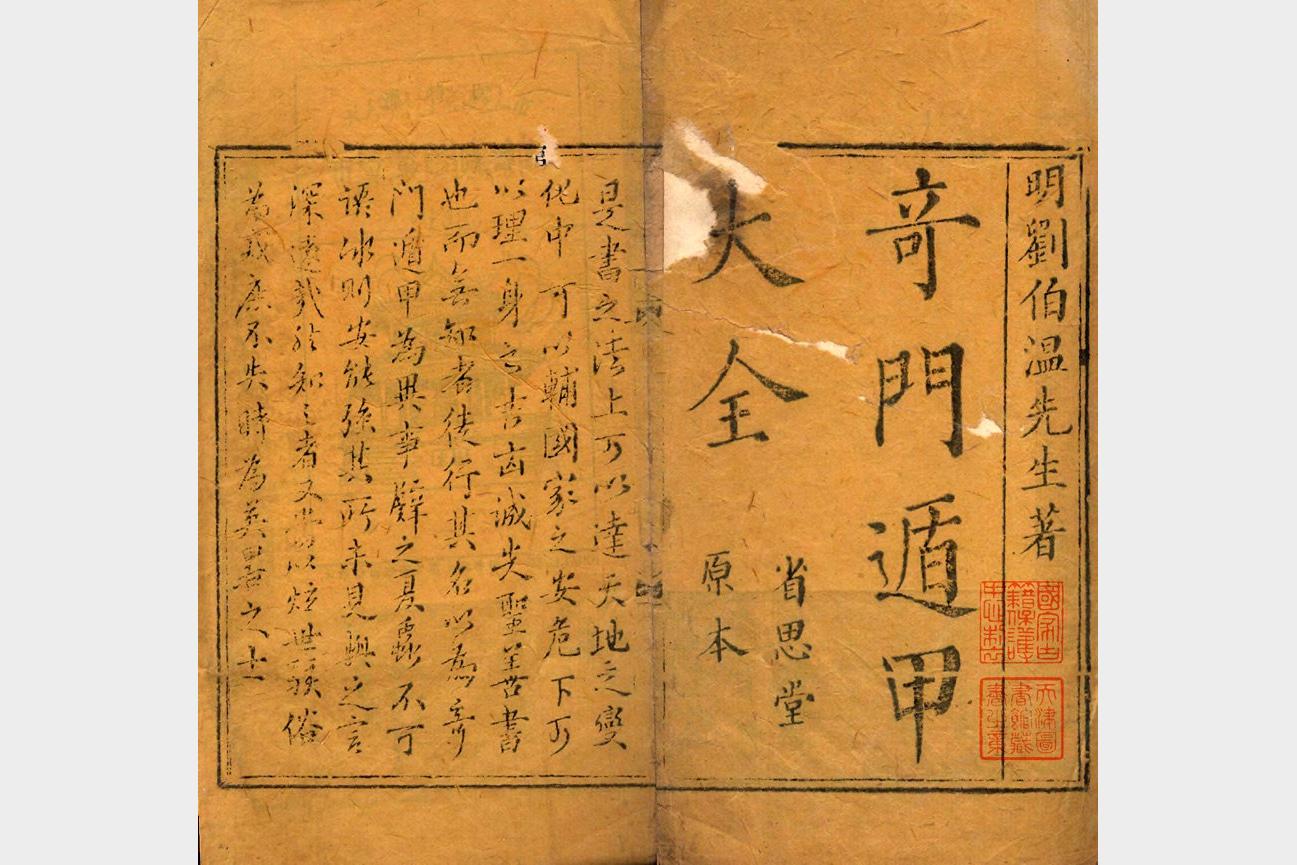 明劉伯温先生著
奇門遁甲
大全
省思堂
原本
國家古
籍保護
天津圖
書館藏
是書之法上可以達天地之變
化中可以輔國家之安危下可
以理一身之吉凶誠失聖善書
也而無知者徒行其名以為奇
門遁甲為異事譬之夏蟲不可
語冰則安能強其所未見與之言
深遠哉然知之者又當以炫世駭俗
為戒庶不失時為英君之士